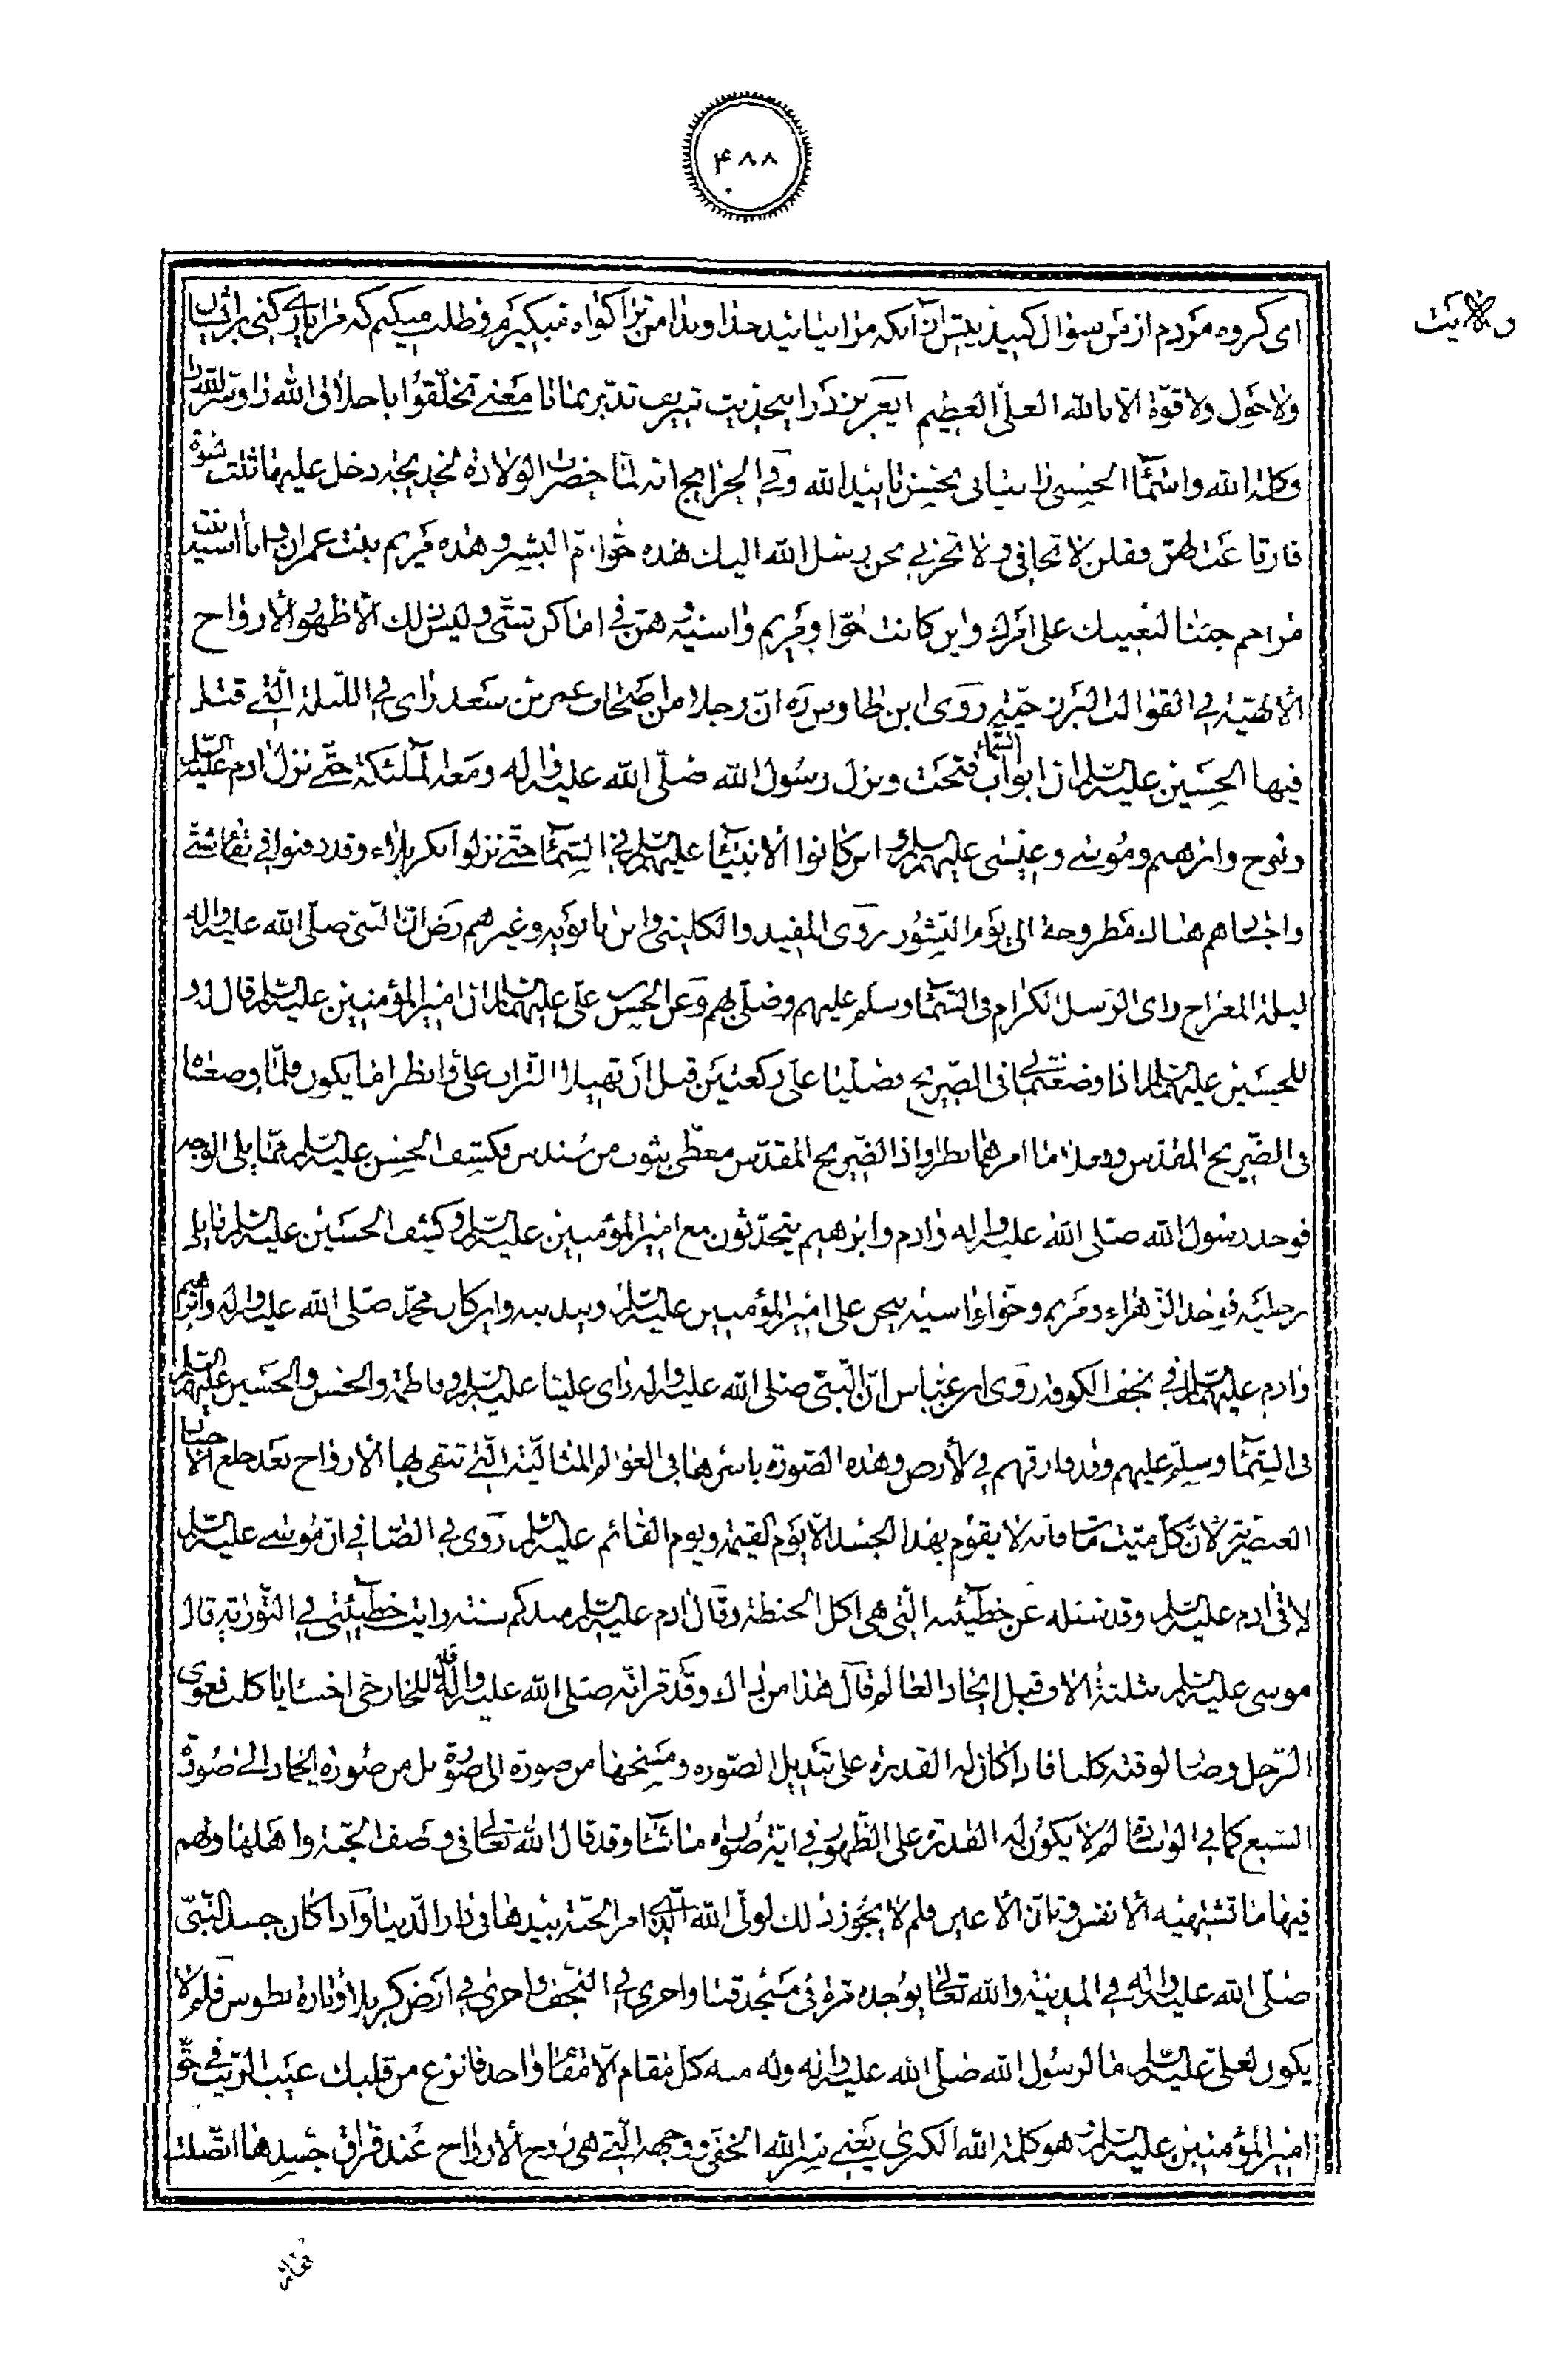 ۴۸۸
ولایت
ای گروه مردم از من سؤال کنید پیش از آنکه مرا نیابید خداوندا من ترا گواه میگیرم و طلب میکنم که مرا یاری کنی بر ایشان
ولا حول ولا قوة الا بالله العلی العظیم ای عزیز من در این حدیث شریف تدبر نما تا معنی تخلقوا باخلاق الله را وسر الله
وکلمة الله واسماء الحسنی را بیابی بحسن تایید الله وفی الخرایج انه لما حضرت الولادة لخدیجة دخل علیها ثلث نسوة
فارتاعت لهن وقلن لا تخافی ولا تحزنی نحن رسل الله الیك هذه حوا ام البشر وهذه مریم بنت عمران وانا اسیة بنت
مزاحم جئنا لنعینك علی امرك واین کانت حوا ومریم واسیة وهن فی اماکن شتی ولیس ذلك الا ظهور الارواح
الالهیة فی القوالب البرزخیة روی ابن طاوس ره ان رجلا من اصحاب عمر بن سعد رای فی اللیلة التی قتل
فیها الحسین علیه السلم ان ابواب السماء فتحت ونزل رسول الله صلی الله علیه واله ومعه الملئكة حتی نزل ادم علیه السلم
ونوح وابرهیم وموسی وعیسی علیهم السلم واین کانوا الانبیاء علیهم السلم فی السماء حتی نزلوا بکربلاء وقد دفنوا فی بقاع شتی
واجسادهم هناك مطروحة الی یوم النشور روی المفید والکلینی وابن بابویه وغیرهم رض ان النبی صلی الله علیه واله
لیلة المعراج رای الرسل الکرام فی السماء وسلم علیهم وصلی بهم وعن الحسن بن علی علیهما السلم ان امیر المؤمنین علیه السلم قال له و
للحسین علیهما السلم اذا وضعتمانی فی الضریح فصلیا علی رکعتین قبل ان تهیلا التراب علی وانظرا ما یکون فلما وضعناه
فی الضریح المقدس وفعلا ما امرهما نظرا واذا الضریح المقدس مغطی بثوب من سندس فکشف الحسن علیه السلم مما یلی الوجه
فوجد رسول الله صلی الله علیه واله وادم وابرهیم یتحدثون مع امیر المؤمنین علیه السلم وکشف الحسین علیه السلم مما یلی
رجلیه فوجد الزهراء ومریم وحواء واسیة ینحن علی امیر المؤمنین علیه السلم ویندبنه واین کان محمد صلی الله علیه واله وابرهیم
وادم علیهما السلم فی نجف الکوفة روی ابن عباس ان النبی صلی الله علیه واله رای علیا علیه السلم وفاطمة والحسن والحسین علیهم السلم
فی السماء وسلم علیهم وقد فارقهم فی الارض وهذه الصورة باسرها فی العوالم المثالیة التی تبقی بها الارواح بعد خلع الاجساد
العنصریة لان کل میت مات فانه لا یقوم بهذا الجسد الا یوم القیمة ویوم القائم علیه السلم روی فی الصافی ان موسی علیه السلم
لاقی ادم علیه السلم وقد سئله عن خطیئته التی هی اکل الحنطة وقال ادم علیه السلم منذ کم سنة رایت خطیئتی فی التوریة قال
موسی علیه السلم بثلثة الاف قبل ایجاد العالم قال هذا من ذاك وقد قرا انه صلی الله علیه واله قال للخارجی اخسا یا کلب فعوی
الرجل وصار لوقته کلبا فاذا کان له القدرة علی تبدیل الصورة ومسخها من صورة الی صورة بل من صورة الجماد الی صورة
السبع کما فی الوسائد لم لا یکون له القدرة علی الظهور فی ایة صورة ما شاء وقد قال الله تعالی فی وصف الجنة واهلها ولهم
فیها ما تشتهیه الانفس وتلذ الاعین فلم لا یجوز ذلك لولی الله الذی امر الجنة بیدها فی دار الدنیا واذا کان جسد النبی
صلی الله علیه واله فی المدینة والله تعالی یوجده مرة فی مسجد قبا واخری فی النجف واخری فی ارض کربلا وتارة بطوس فلم لا
یکون لعلی علیه السلم ما لرسول الله صلی الله علیه واله وله منه کل مقام الا مقاما واحد فانزع من قلبك عیب الریب فی حق
امیر المؤمنین علیه السلم هو کلمة الله الکبری یعنی سر الله الخفی ووجهه التی هی روح الارواح عند فراق جسدها اتصلت